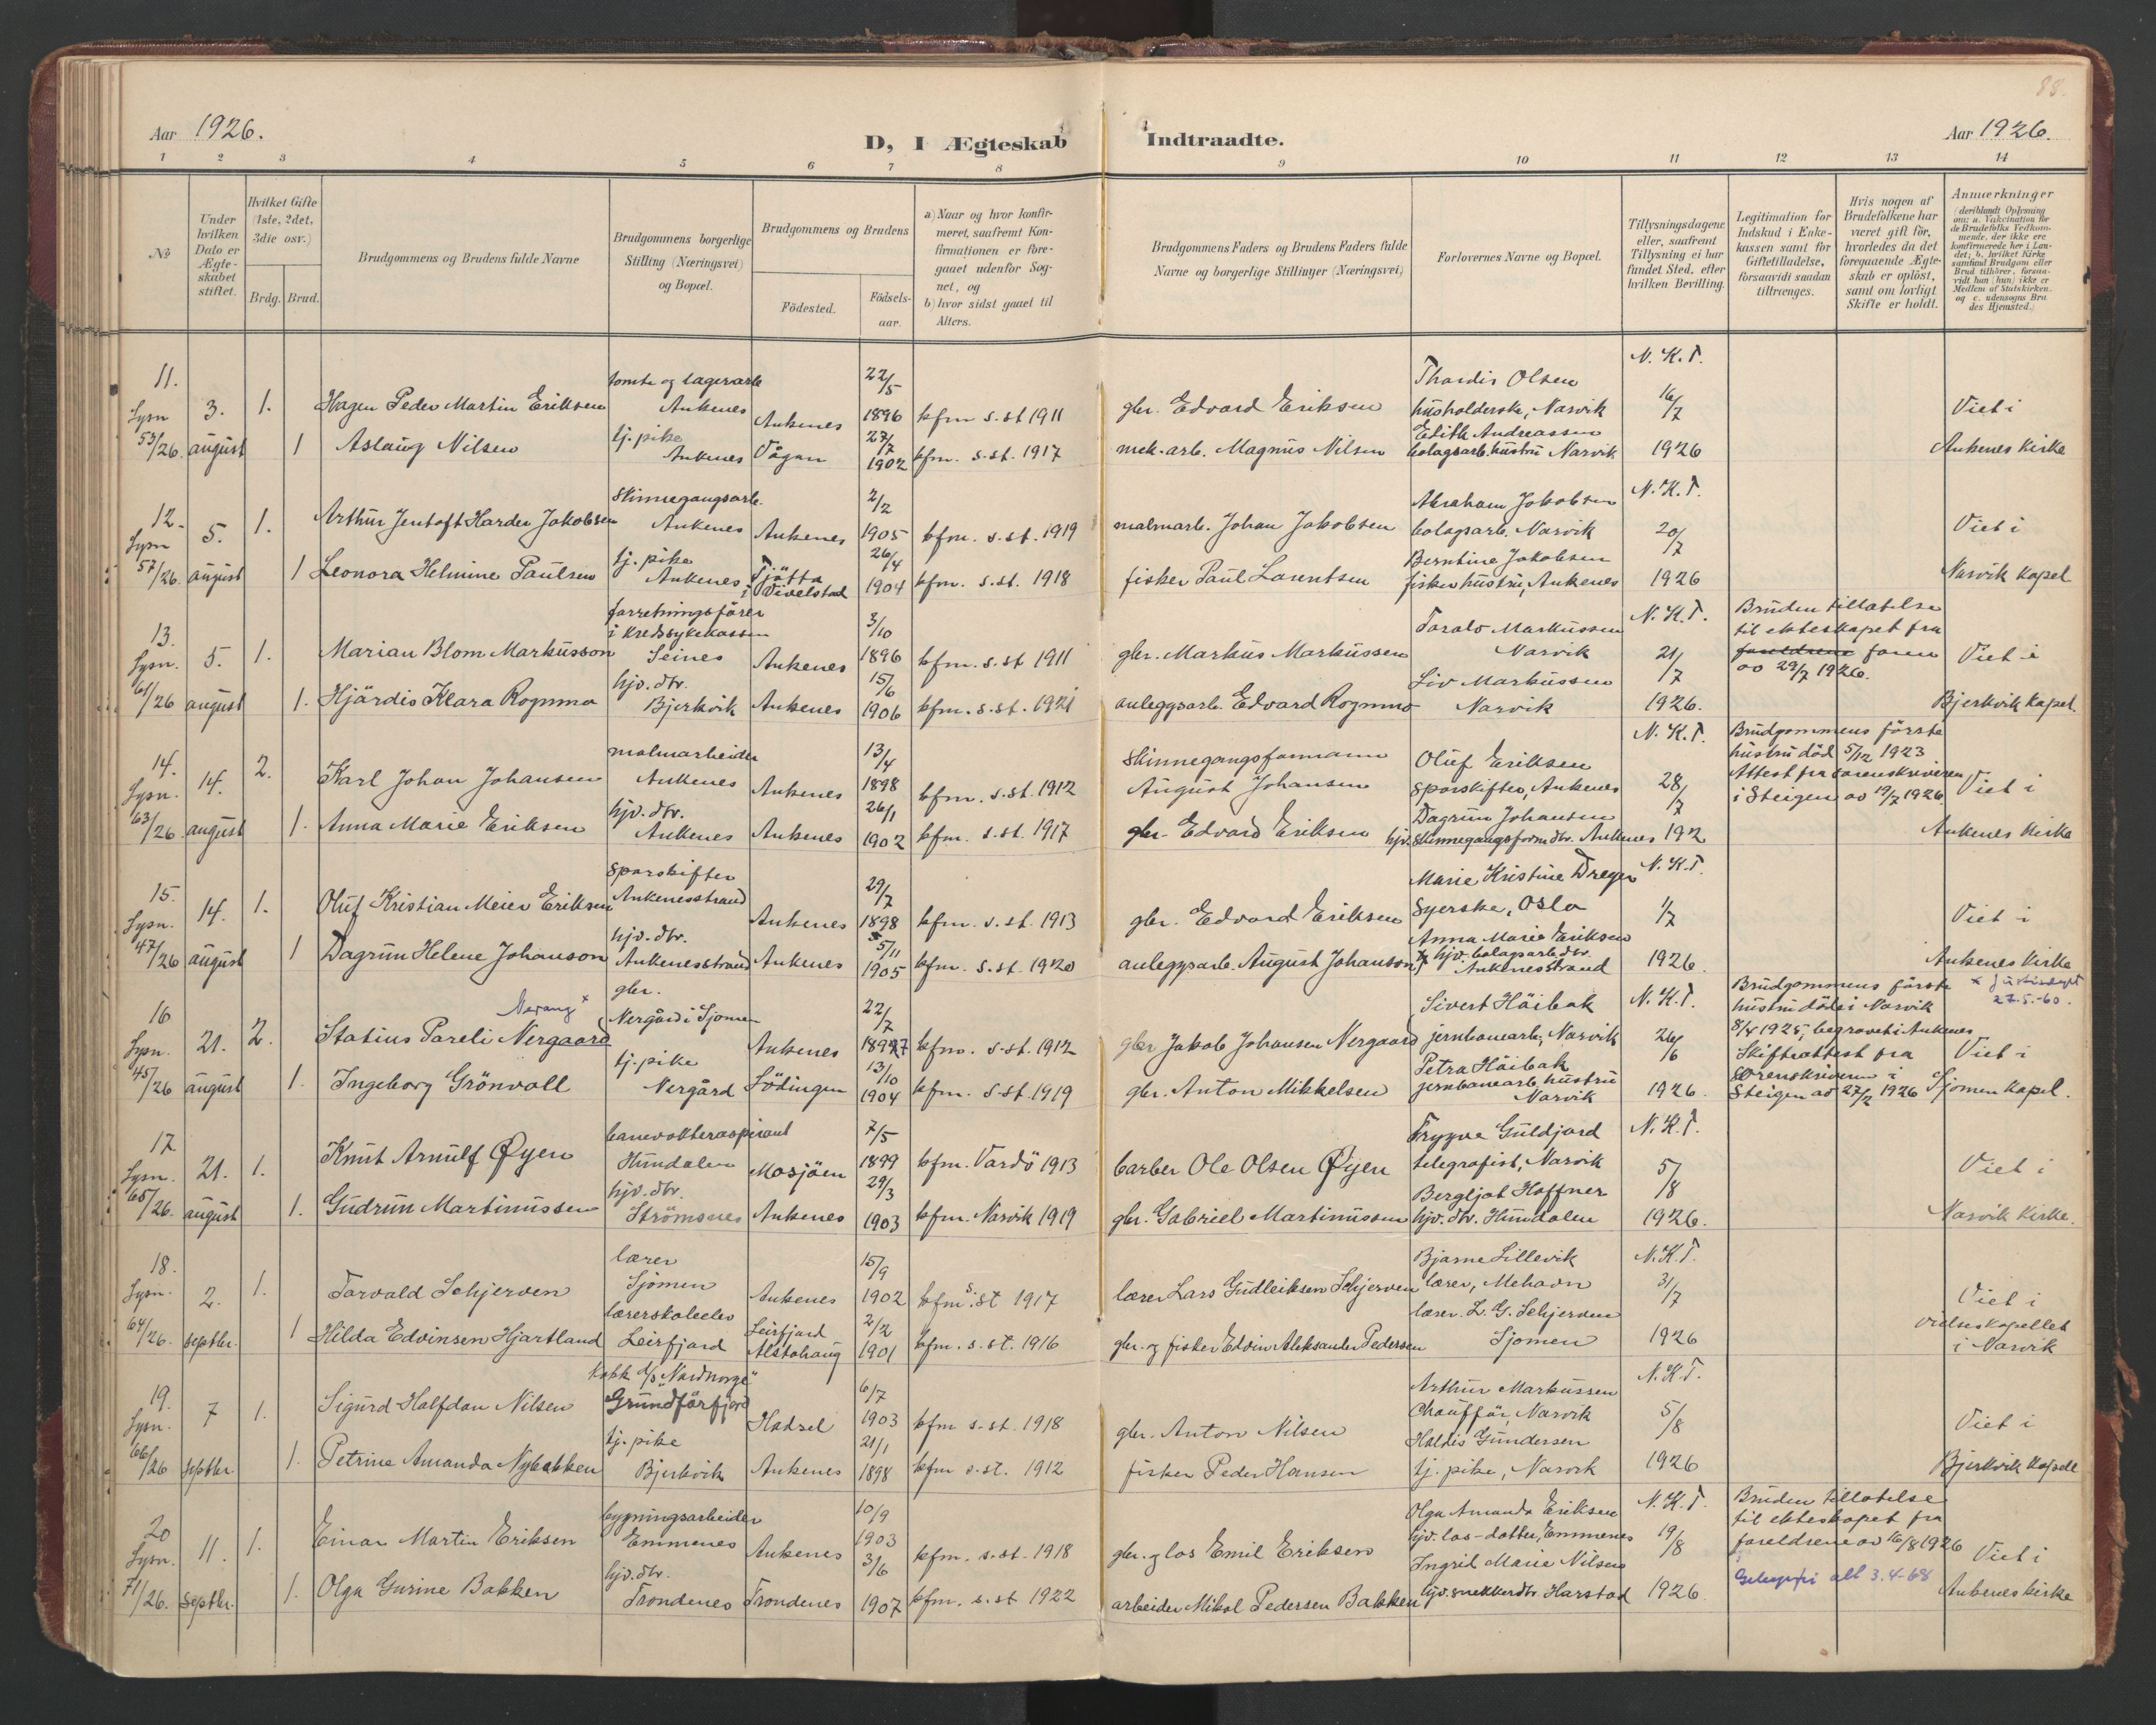 88.
Aar 1926.
D, I Ægteskab Indtraadte.
Aar 1926.
1 2 3 4 5 6 7 8 9 10 11 12 13 14
No
Under hvilken Dato er Ægteskabet stiftet.
Hvilket Gifte (1ste, 2det, 3die osv.)
Brdg. Brud.
Brudgommens og Brudens fulde Navne
Brudgommens borgerlige Stilling (Næringsvei) og Bopæl.
Brudgommens og Brudens
Födested.
Födselsaar.
a) Naar og hvor konfirmeret, saafremt Konfirmationen er foregaaet udenfor Sognet, og
b) hvor sidst gaaet til Alters.
Brudgommens Faders og Brudens Faders fulde Navne og borgerlige Stillinger (Næringsvei)
Forlovernes Navne og Bopæl.
Tillysningsdagene eller, saafremt Tillysning ei har fundet Sted, efter hvilken Bevilling.
Legitimation for Indskud i Enkekassen samt for Giftetilladelse, forsaavidt saadan tiltrænges.
Hvis nogen af Brudefolkene har været gift før, hvorledes da det foregaaende Ægteskab er oplöst, samt om lovligt Skifte er holdt.
Anmærkninger
(deriblandt Oplysning om: a. Vakcination for de Brudefolks Vedkommende, der ikke ere konfirmerede her i Landet; b. hvilket Kirkesamfund Brudgom eller Brud tilhörer, forsaavidt han (hun) ikke er Medlem af Statskirken, og c. udensogns Brudes Hjemsted.)
11. Lysn 53/26. 3. august 1.
Hagen Peder Martin Eriksen
tomte og lagerarb. Ankenes
Ankenes 22/5 1896 kfm s.st 1911
gbr. Edvard Eriksen
Thordis Olsen husholderske, Narvik
N.K.T. 16/7 1926
Viet i Ankenes Kirke
1 Aslaug Nilsen
tj. pike Ankenes
Vågan 27/7 1902 kfm. s.st. 1917
mek.arb. Magnus Nilsen
Edith Andreassen bolagsarb.hustru Narvik
12. Lysn 57/26. 5. august 1.
Arthur Jentoft Harder Jakobsen
Skinnegangsarb. Ankenes
Ankenes 2/2 1905 kfm. s.st. 1919
malmarb. Johan Jakobsen
Abraham Jakobsen bolagsarb. Narvik
N.K.T. 20/7 1926
Viet i Narvik Kapel
1 Leonora Helmine Paulsen
tj. pike Ankenes
Tjøtta i Vivelstad 26/4 1904 kfm. s.st. 1918
fisker Paul Lorentsen
Berntine Jakobsen fisker hustru, Ankenes
13. Lysn. 61/26 5. august 1.
Marian Blom Markusson
forretningsfører i Kredssykekassen Seines
Ankenes 3/10 1896 kfm. s.st 1911
gbr. Markus Markussen
Toralv Markussen Narvik
N.K.T. 21/7 1926.
Bruden tillatelse til ekteskapet fra foreldrene faren av 29/7 1926.
Viet i Bjerkvik Kapel.
1. Hjördis Klara Rognmo
hjv. dtr. Bjerkvik
Ankenes 15/6 1906 kfm. s.st. 1921
anleggsarb. Edvard Rognmo
Liv Markussen Narvik
14. Lysn. 63/26 14. august 2.
Karl Johan Johansen
malmarbeider Ankenes
Ankenes 13/4 1898 kfm. s.st. 1912
Skinnegangsformann August Johansen
Oluf Eriksen Sporskifter, Ankenes
N.K.T. 28/7 192
Brudgommens første hustru død 5/12 1923 Attest fra sorenskriveren i Steigen av 19/7 1926.
Viet i Ankenes Kirke
1. Anna Marie Eriksen
hjv. dtr. Ankenes
Ankenes 26/1 1902 kfm. s.st. 1917
gbr. Edvard Eriksen
Dagrun Johansen hjv. Skinnegangsform.dtr. Ankenes
15. Lysn. 47/26 14. august 1.
Oluf Kristian Meier Eriksen
Sporskifter Ankenesstrand
Ankenes 29/7 1898 kfm. s.st. 1913
gbr. Edvard Eriksen
Marie Kristine Dreyer Syerske, Oslo
N.K.T. 1/7 1926.
Viet i Ankenes Kirke
1 Dagrun Helene Johanson
hjv. dtr. Ankenesstrand
Ankenes 5/11 1905 kfm. s.st. 1920
anleggsarb. August Johanson
Anna Marie Eriksen hjv. bolagsarb.dtr. Ankenesstrand
16 Lysn. 45/26 21. august 2.
Nerang x
Statius Pareli Nergaard
gbr. Nergård i Sjomen
Ankenes 22/7 1897 kfm. s.st. 1912
gbr Jakob Johansen Nergaard
Sivert Høibak jernbanearb, Narvik
N.K.T. 26/6 1926
Brudgommens første hustru døde i Narvik 8/4 1925, begravet i Ankenes Skifteattest fra Sorenskriveren i Steigen av 27/2 1926
x Justisdept 27.5.-60.
Viet i Sjomen Kapel.
1. Ingeborg Grönvoll
tj. pike Nergård
Lödingen 13/10 1904 kfm. s.st. 1919
gbr. Anton Mikkelsen
Petra Høibak jernbanearb. hustru Narvik
17 Lysn. 65/26. 21. august 1.
Knut Arnulf Øyen
banevokteraspirant Hundalen
Mosjøen 7/5 1899 kfm. Vardø 1913
barber Ole Olsen Øyen
Trygve Guldjord telegrafist, Narvik
N.K.T. 5/8 1926.
Viet i Narvik Kirke.
1. Gudrun Martinussen
hjv. dtr. Strömsnes
Ankenes 29/3 1903 kfm. Narvik 1919
gbr. Gabriel Martinussen
Bergljot Hoffner hjv. dtr. Hundalen
18. Lysn. 64/26. 2. septbr. 1.
Torvald Schjerven
lærer Sjomen
Ankenes 15/9 1902 kfm s.st 1917
lærer Lars Gudleiksen Schjerven
Bjarne Lillevik lærer, Mehavn
N.K.T. 31/7 1926
Viet i vielseskapellet i Narvik
1 Hilda Edvinsen Hjartland
lærerskoleelev Leirfjord
Leirfjord Alstahaug 2/2 1901 kfm. s.st. 1916
gbr. og fisker Edvin Aleksander Pedersen
lærer L. G. Schjerven Sjomen
19. Lysn. 66/26 7 septbr. 1.
Sigurd Halfdan Nilsen
kokk d/s "Nordnorge" Grundförfjord
Hadsel 6/7 1903 kfm s.st. 1918
gbr. Anton Nilsen
Arthur Markussen Chaufför, Narvik
N.K.T. 5/8 1926
Viet i Bjerkvik Kapell
1. Petrine Amanda Nybakken
tj. pike Bjerkvik
Ankenes 21/1 1898 kfm s.st. 1912
fisker Peder Hansen
Haldis Gundersen tj. pike, Narvik
20 Lysn. 71/26. 11. septbr. 1.
Einar Martin Eriksen
bygningsarbeider Emmenes
Ankenes 10/9 1903 kfm. s.st. 1918
gbr. g los Emil Eriksen
Olga Amanda Eriksen hjv. los-datter, Emmenes
N.K.T. 19/8 1926.
Bruden tillatelse til ekteskapet fra foreldrene av 16/8 1926
att 3.4-68
Viet i Ankenes kirke
1. Olga Gurine Bakken
hjv. dtr. Trondenes
Trondenes 3/6 1907 kfm. s.st. 1922
arbeider Mikal Pedersen Bakken
Ingrid Marie Nilsen hjv. snekkerdtr. Harstad